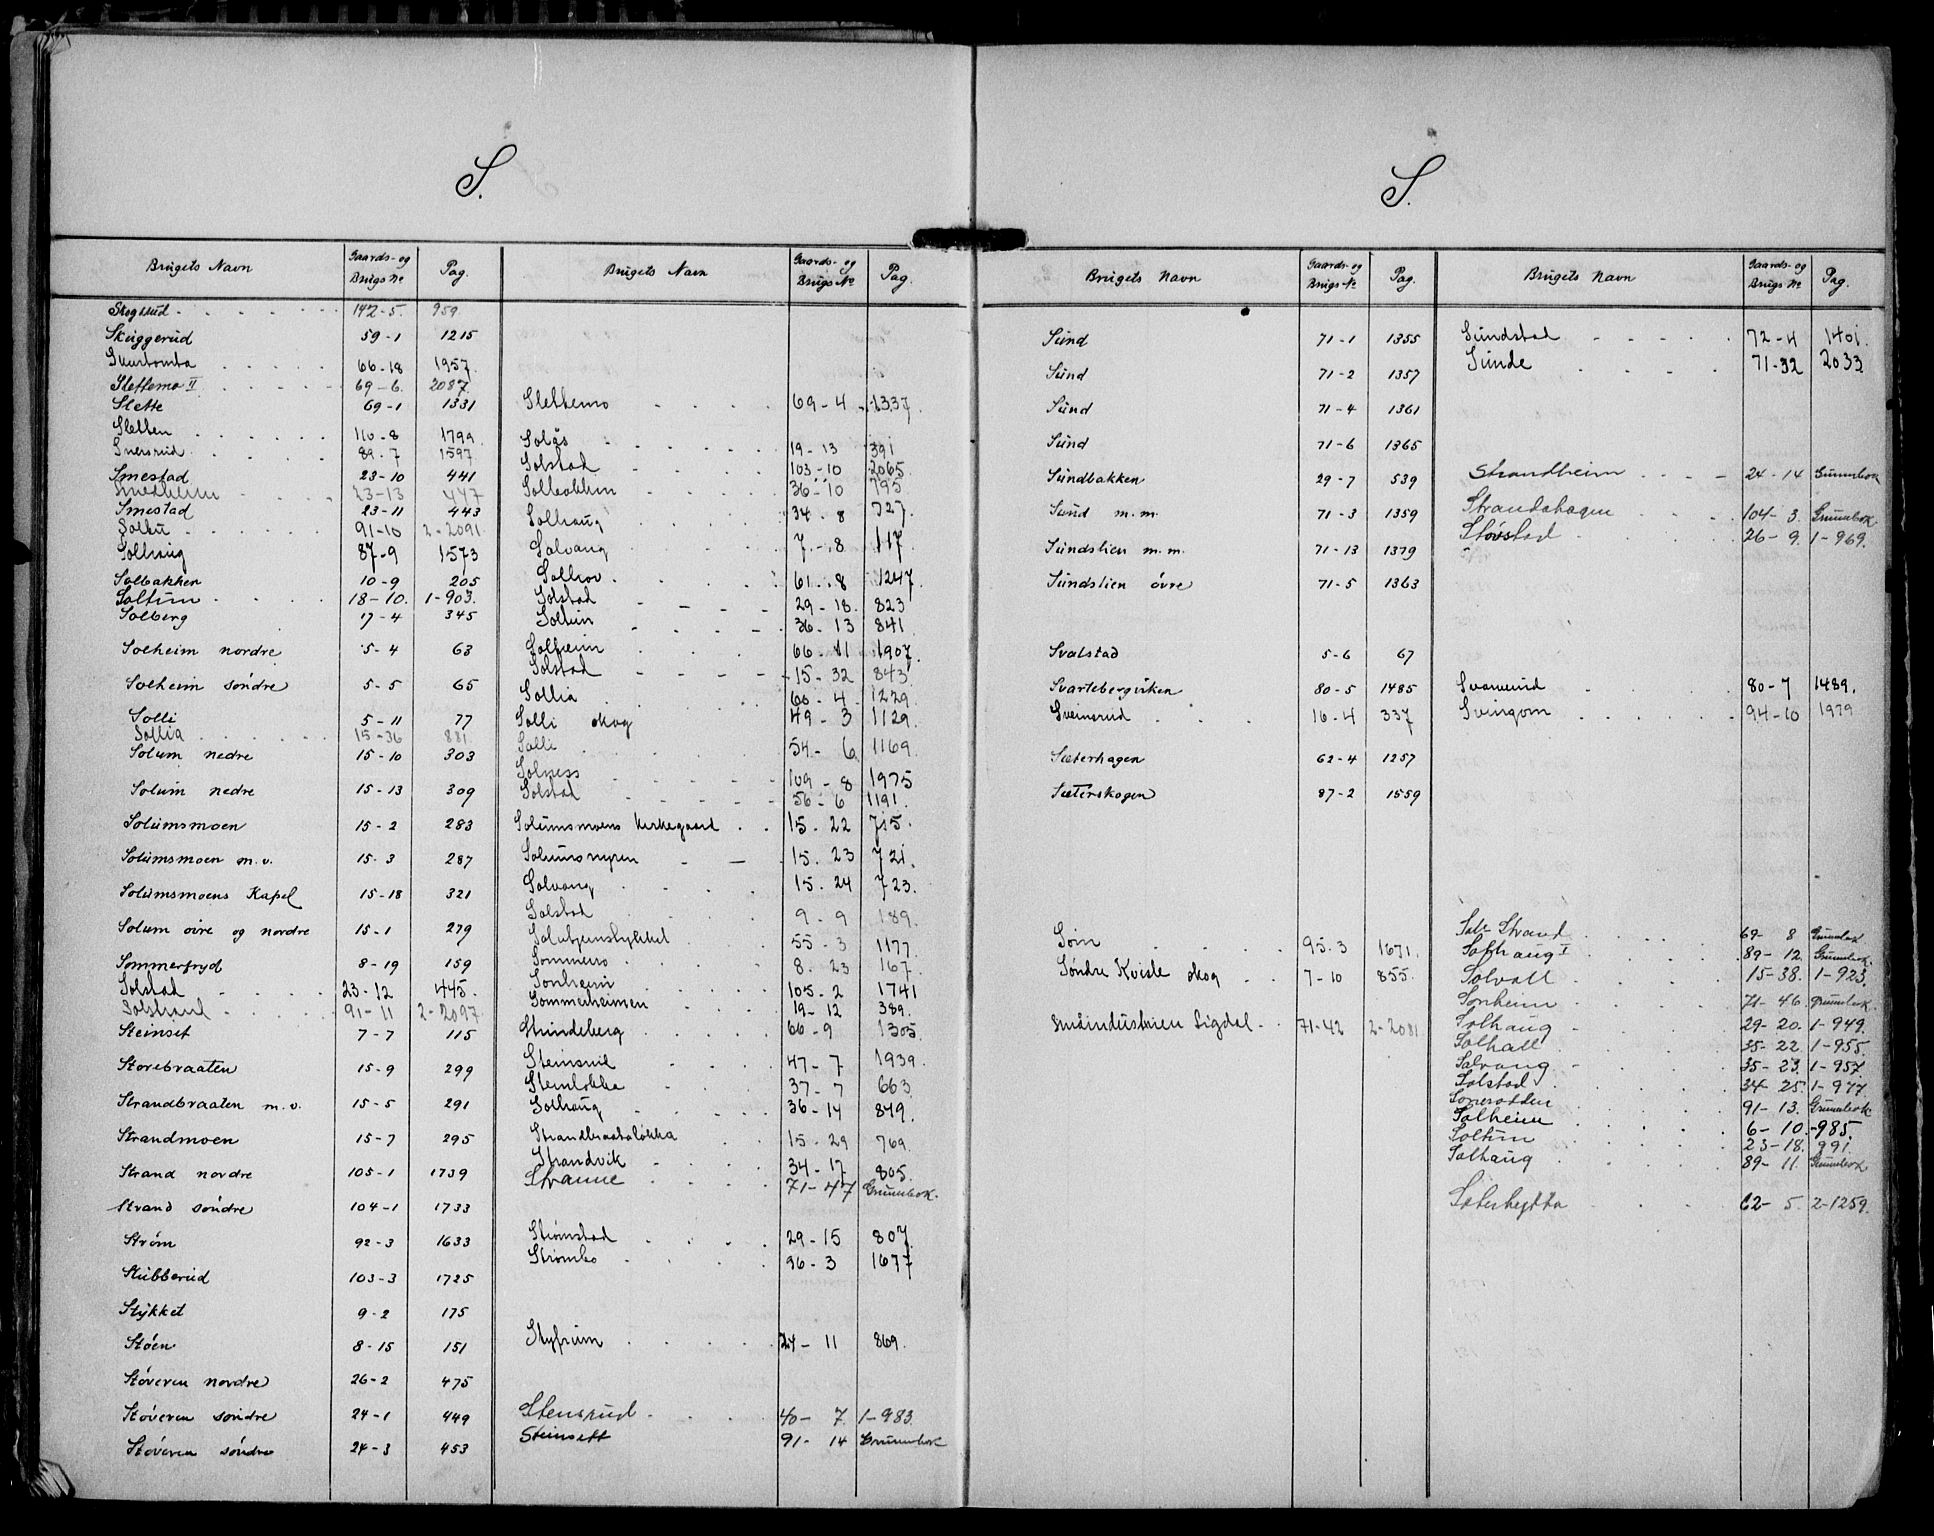 S.
Brugets Navn Gaards- og Brugs № Pag.
Skogstud 142-5. 959.
Skuggerud 59-1 1215
66-18 1957.
Slettemo II 69-6. 2087.
Slette 69-1 1331
Sletten 110-8 1799.
Snersrud 89-7 1597
Smestad 23-10 441
Smedheim 23-13 447
Smestad 23-11 443
91-10 2-2091
Solhaug 87-9 1573
Solbakken 10-9 205
Soltun 18-10. 1-903.
Solberg 17-4 345
Solheim nordre 5-4 63
Solheim søndre 5-5 65
Solli 5-11 77
Sollia 15-36 881
Solum nedre 15-10 303
Solum nedre 15-13 309
Solumsmoen 15-2 283
Solumsmoen m.v. 15-3 287
Solumsmoens Kapel 15-18 321
Solum øvre og nordre 15-1 279
Sommerfryd 8-19 159
Solstad 23-12 445.
Solstrand 91-11 2-2097
Steinset 7-7 115
Storebraaten 15-9 299
Strandbraaten m.v. 15-5 291
Strandmoen 15-7 295
Strand nordre 105-1 1739
Strand søndre 104-1 1733
Strøm 92-3 1633
Stubberud 103-3 1725
Stykket 9-2 175
Støen 8-15 151
Støveren nordre 26-2 475
Støveren søndre 24-1 449
Støveren søndre 24-3 453
Brugets Navn Gaards- og Brugs № Pag.
Slettemo 69-4 1337.
Solås 19-13 391
Solstad 103-10 2065
Solbakken 36-10 795
Solhaug 34-8 727.
Solvang 7-8 117
Solhov 61-8 1247.
Solstad 29-18. 823
Soltun 36-13 841
Solheim 66-11 1907
Solstad 15-32 843
Sollia 60-4 1229
Solli skog 49-3 1129.
Solli 54-6 1169
Solness 109-8 1975
Solstad 56-6 1191.
Solumsmoens Kirkegaard 15-22 715.
Solumsmyren 15-23 721.
Solvang 15-24 723.
Solstad 9-9 189.
55-3 1177
Sommero 8-23 167.
Sonheim 105-2 1741
Sommerheimen 19-12 389.
Strindeberg 66-9 1305
47-7 1939.
Steinløkka 37-7 663
Solhaug 36-14 849.
Strandbraataløkka 15-29 769.
Strandvik 34-17 805.
Stranne 71-47 Grunnbok.
Strømstad 29-15 807.
Strømbo 96-3 1677
Styfrum 24-11 869.
Stensrud 40-7. 1-983.
Steinsett 91-14 Grunnbok
S.
Brugets Navn Gaards- og Brugs № Pag.
Sund 71-1 1355
Sund 71-2 1357
Sund 71-4 1361
Sund 71-6 1365
Sundbakken 29-7 539
Sund m.m. 71-3 1359
Sundslien m.m. 71-13 1379
Sundslien øvre 71-5 1363
Svalstad 5-6 67
Svartebergviken 80-5 1485
Sveinsrud 16-4 337
Sæterhagen 62-4 1257
Sæterskogen 87-2 1559
Søm 95-3 1671.
Søndre Kviste skog 7-10 855.
Småindustrien Sigdal 71-42 2-2081
Brugets Navn Gaards- og Brugs № Pag.
Sundstad 72-4 1401.
Sunde 71-32 2033
Strandheim 24-14 Grunnbok
Strandahagen 104-3. Grunnbok.
Støvstad 26-9. 1-969.
Svarverud 80-7 1489.
Svingom 94-10 1979
Strand 69-8 Grunnbok
Solhaug I 89-12. Grunnbok.
Solvoll 15-38. 1-923.
Sonheim 71-46. Grunnbok.
Solhaug 29-20. 1-949.
Solhall 35-22. 1-955.
Solvang 35-23. 1-957.
Solstad 34-25. 1-977.
91-13. Grunnbok
Solheim 6-10. -985.
Soltun 23-18. 991.
Solhaug 89-11. Grunnbok
Seterhytta 62-5. 2-1259.